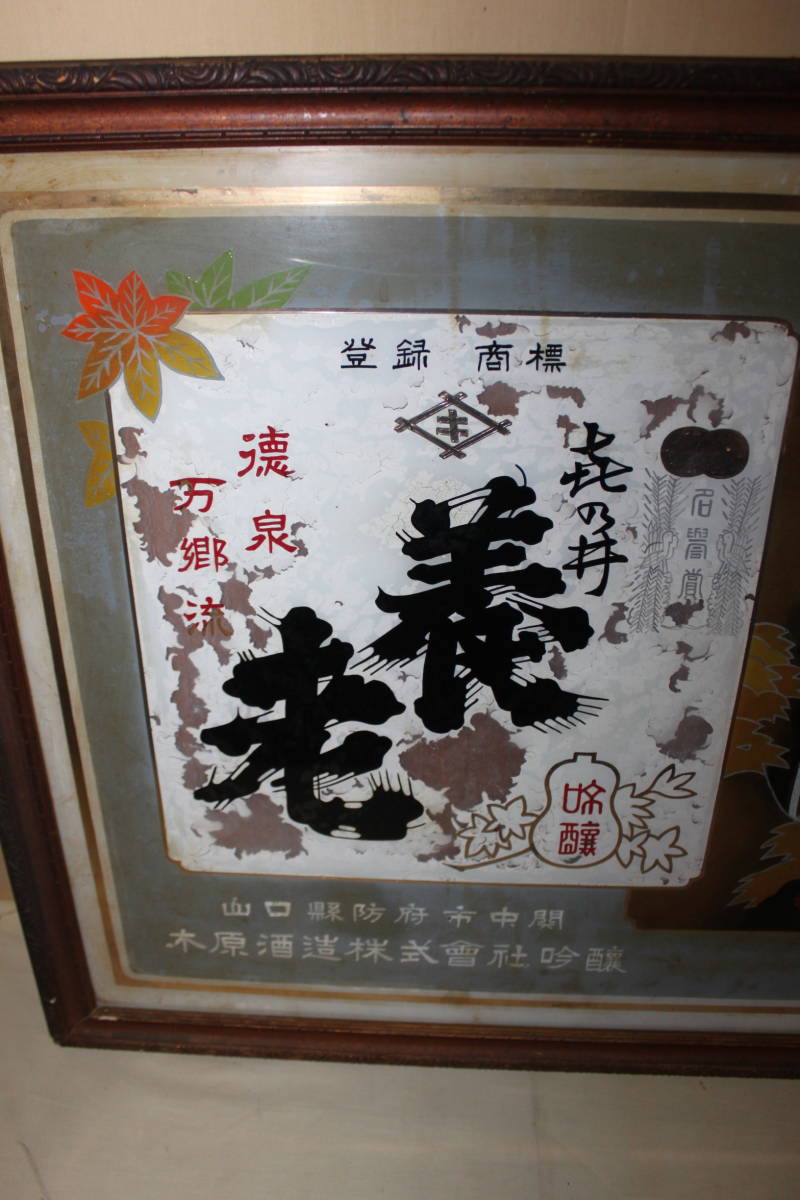 登録 商標
キ
㐂の井
名譽賞
養老
德泉
万郷流
吟醸
山口縣防府市中関
木原酒造株式會社吟釀